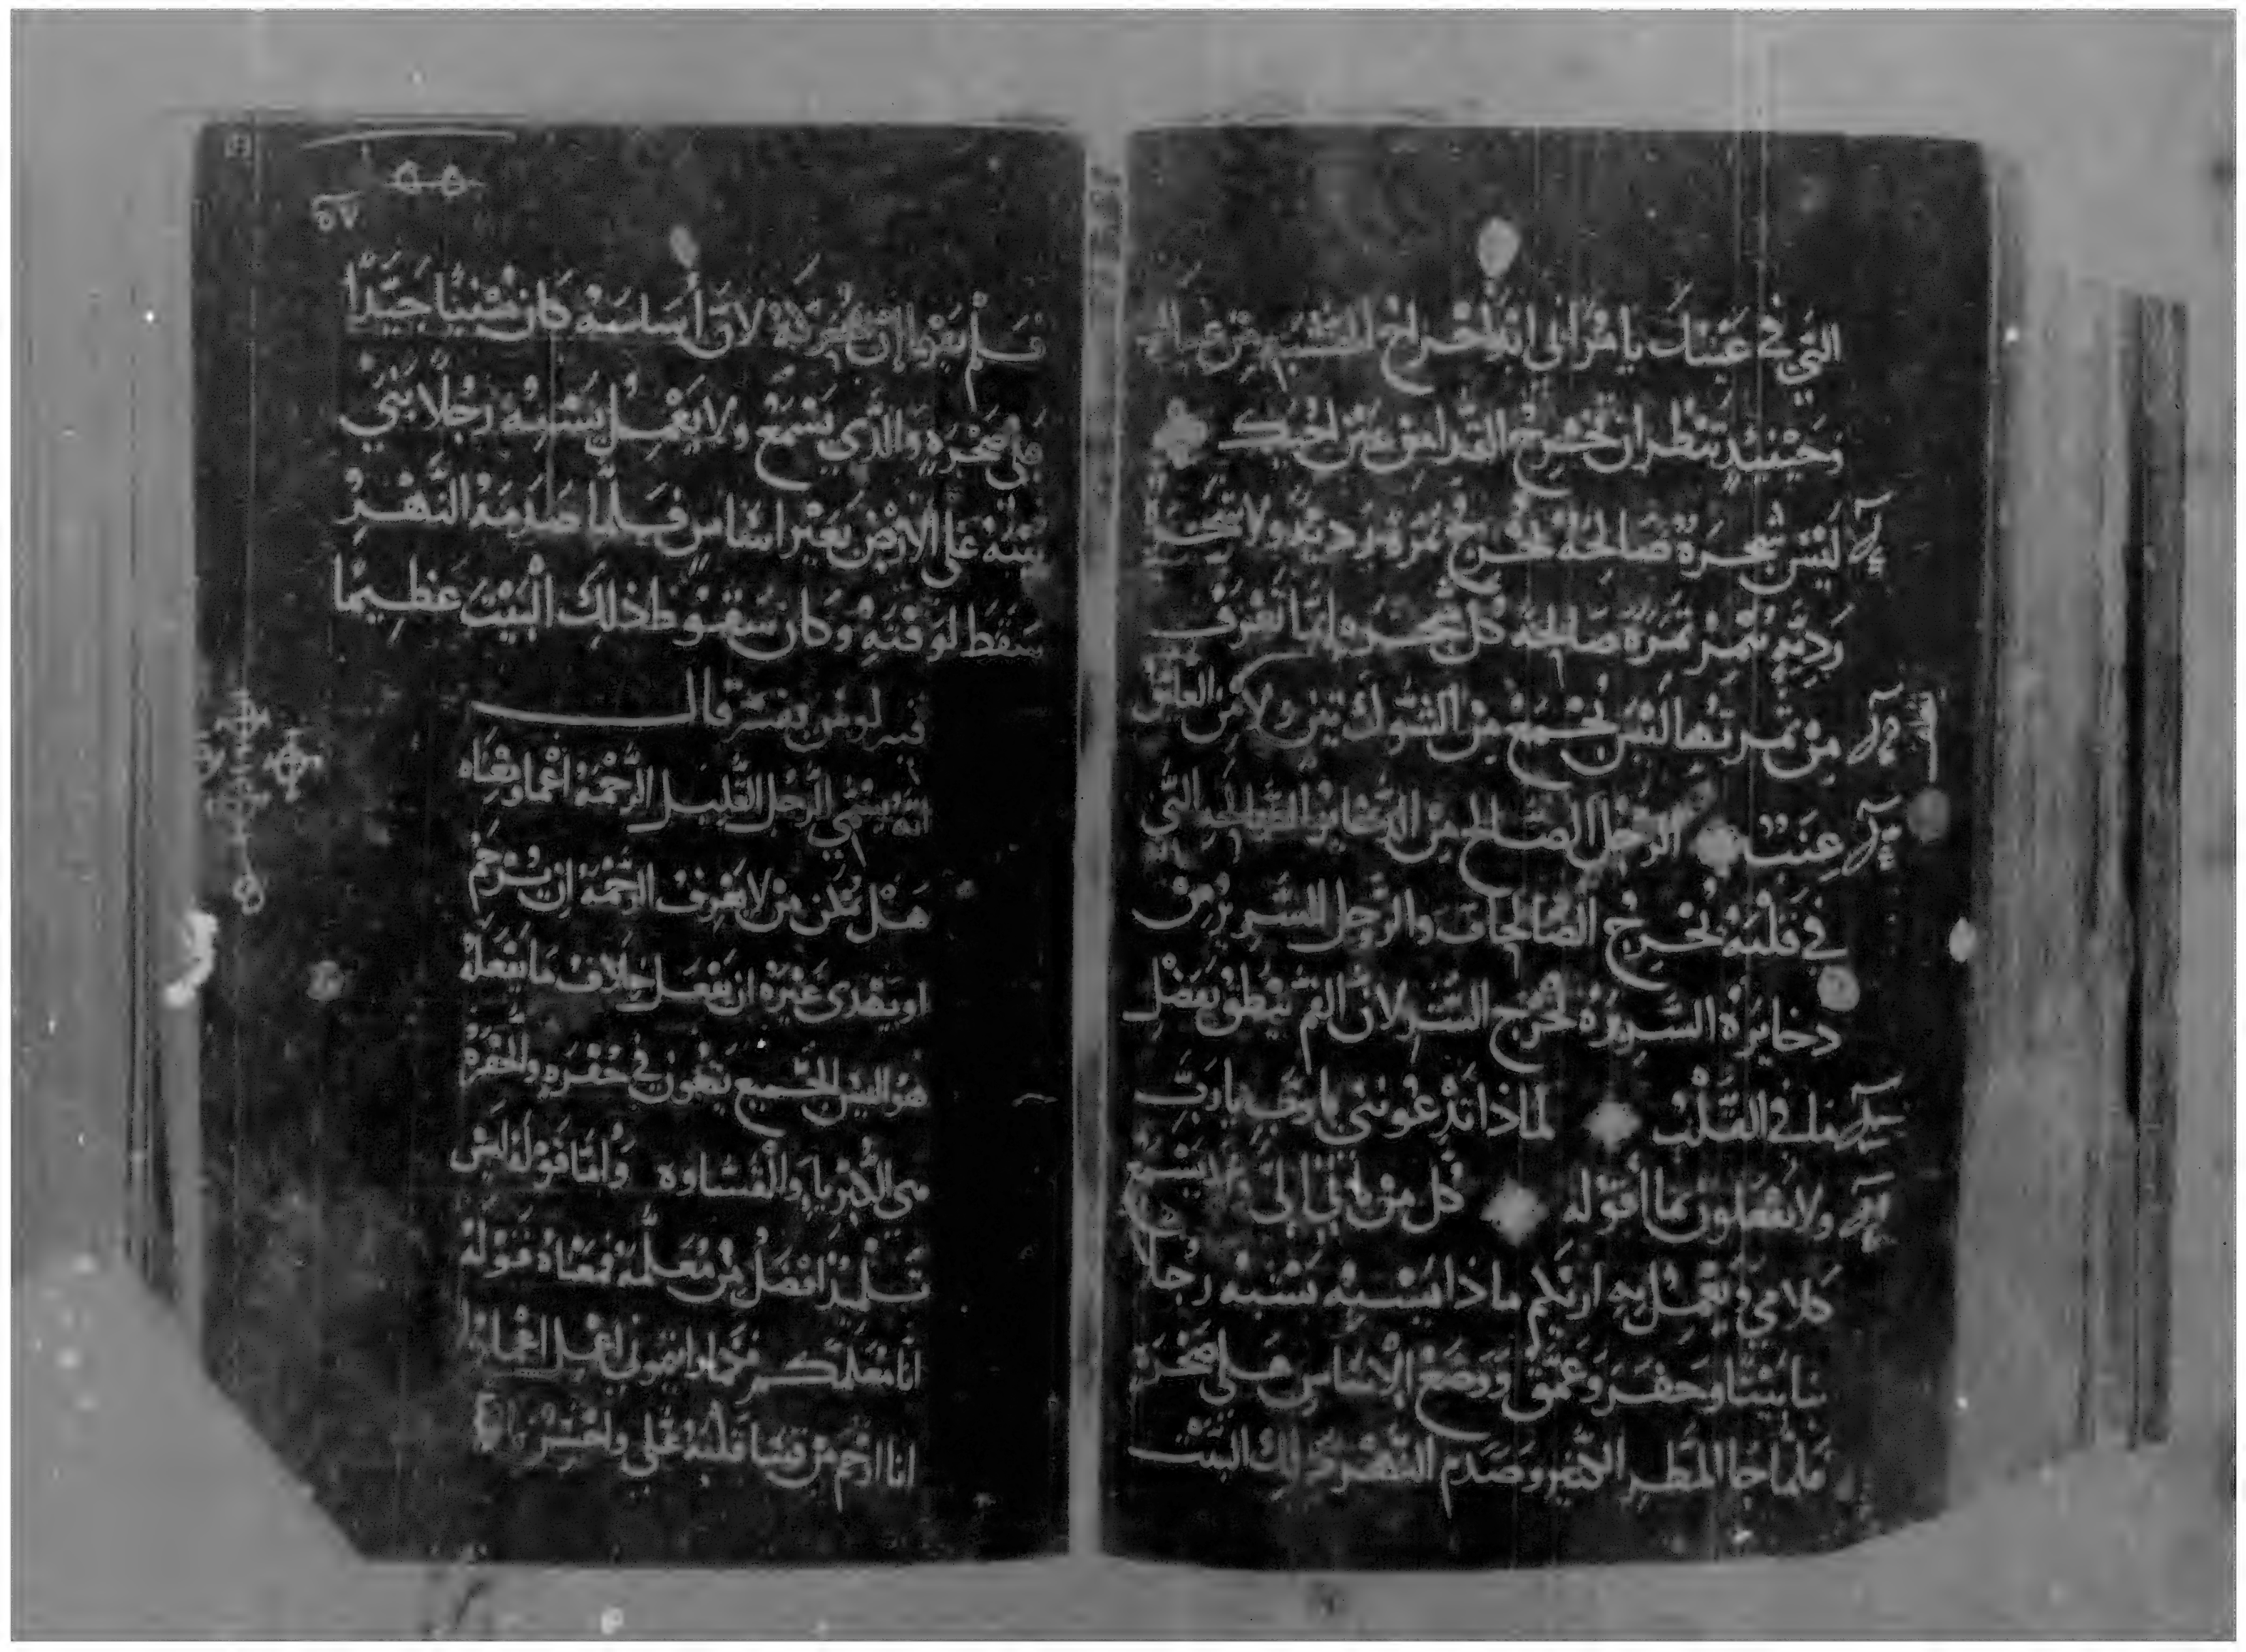 التي في عينك يا مرائي ابدا اخراج الخشبه من عينك
وحينئذ تنظر ان تخرج القذا من عين اخيك
ليس شجرة صالحة تخرج ثمرة رديه ولا شجرة
رديه تثمر ثمرة صالحة كل شجره انما تعرف
من ثمرتها ليس يجمع من الشوك تين ولا من العليق
عنب الرجل الصالح من الذخاير الصالحه التي
في قلبه يخرج الصالحات والرجل الشرير من
دخايره الشريرة يخرج الشر لان الفم ينطق بفضل
ما في القلب لماذا تدعونني يارب يارب
ولا تفعلون بما اقوله كل من ياتي الي يسمع
كلامي ويعمل به اريكم ماذا يشبه يشبه رجلا
بنا بيتا وحفر وعمق ووضع الاساس على صخرة
فلما جا المطر الكثير وصدم النهر ذلك البيت
٥٧
فلم يقويا ان يحركه لان اساسه كان مبنيا جيدا
على صخره والذي يسمع ولا يعمل يشبه رجلا بنى
بيته على الارض بغير اساس فلما صدمه النهر
سقط لوقته وكان سقوط ذلك البيت عظيما
قال
انه يسمي الرجل القليل الرحمة اعما ومعناه
هل يمكن من لا يعرف الرحمة ان يرحم
او يهدي غيره ان يفعل خلاف ما يفعله
هو اليس الجميع يقعون في حفره والحفرة
هي الكبريا والقساوه واما قوله ليس
تلميذ افضل من معلمه فمعناه قوله
انا معلمكم
انا ارحم من قسا قلبه علي واحسن